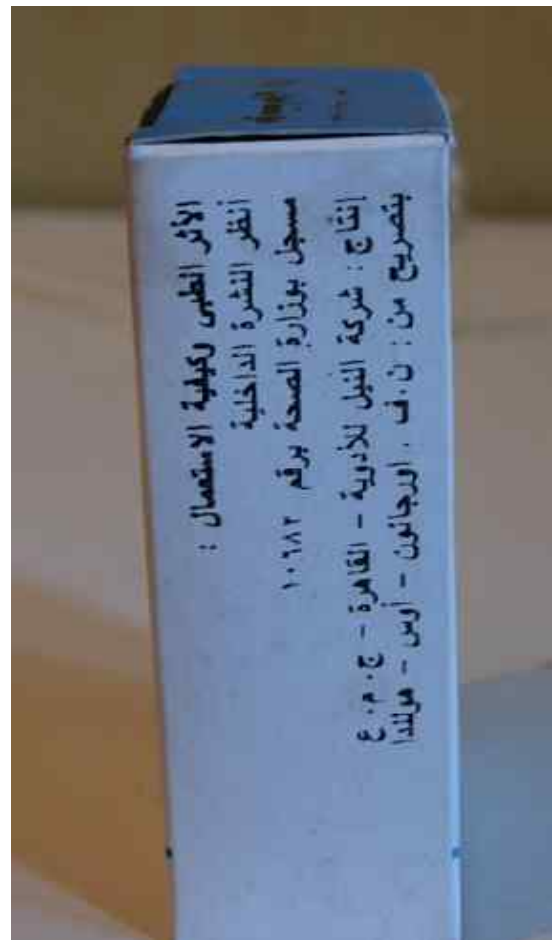 الأثر الطبى وكيفية الاستعمال :
أنظر النشرة الداخلية
مسجل بوزارة الصحة برقم ١٠٦٨٢
إنتاج : شركة النيل للأدوية - القاهرة - ج.م.ع
بتصريح من : ن.ف. اورجانون - أوس - هولندا